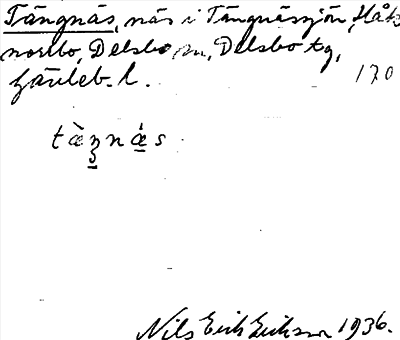 Tängnäs, näs i Tängnässjön, Håk
norsbo, Delsbo sn, Delsbo tg,
Gävleb. l.
170
tæ̀ŋnæ̀s
Nils Erik Erikson 1936.